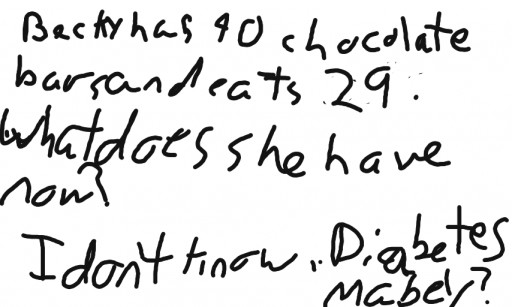 Becky has 40 chocolate
bars and eats 29.
What does she have
now?
I don't know.. Diabetes
mabey?